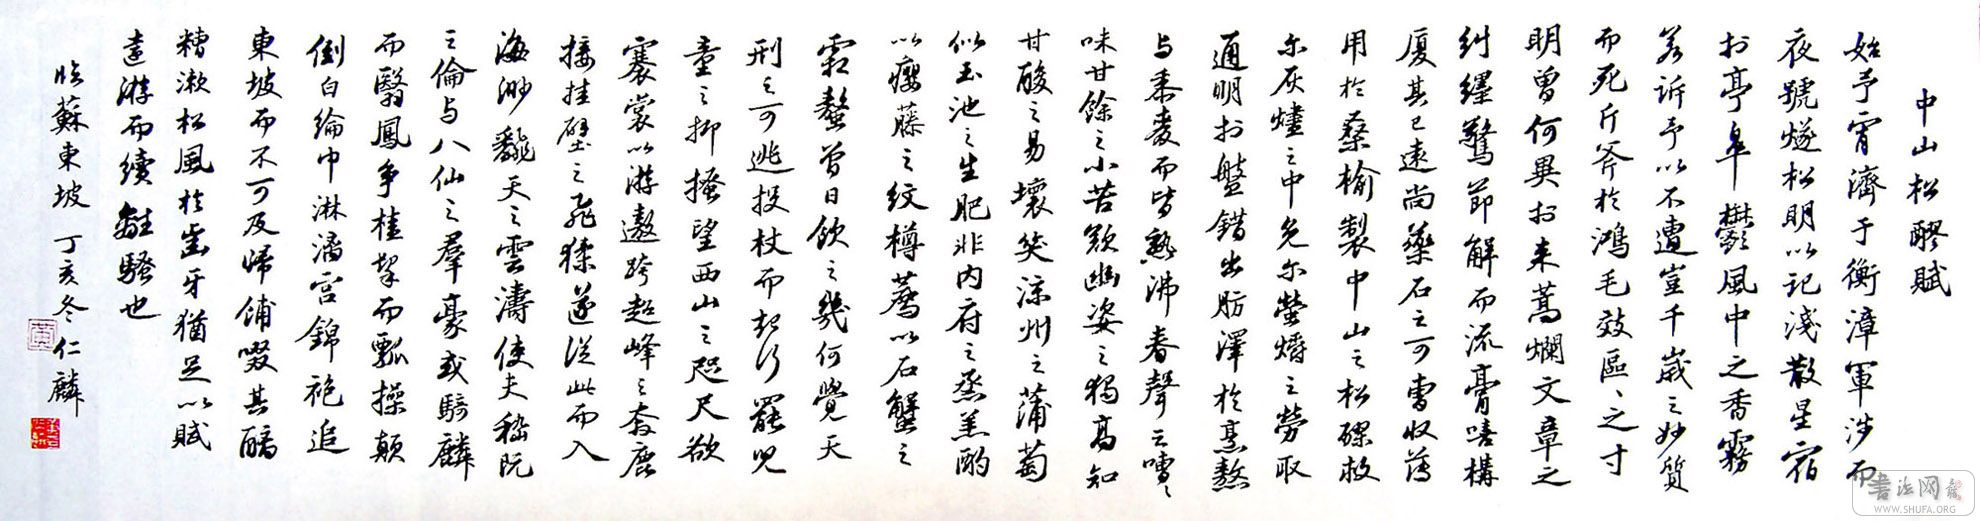 中山松醪賦
始予宵濟于衡漳軍涉而
夜號燧松明以記淺散星宿
於亭皋鬱風中之香霧
若訴予以不遭豈千歲之妙質
而死斤斧於鴻毛效區々之寸
明曾何異於束蒿爛文章之
糾纆驚節解而流膏嘻構
廈其已遠尚藥石之可曹收薄
用於桑榆製中山之松醪救
尔灰燼之中免尔螢爝之勞取
通明於盤錯出肪澤於烹熬
与黍麥而皆熟沸舂聲之嘈々
味甘餘之小苦歎幽姿之獨高知
甘酸之易壞笑涼州之蒲萄
似玉池之生肥非内府之烝羔酌
以癭藤之紋樽薦以石蟹之
霜螯曾日飲之幾何覺天
刑之可逃投杖而起行罷兒
童之抑搔望西山之咫尺欲
褰裳以游遨跨超峰之奔鹿
接挂壁之飛猱遂從此而入
海渺翻天之雲濤使夫嵇阮
之倫与八仙之羣豪或騎麟
而翳鳳爭榼挈而瓢操顛
倒白綸巾淋漓宮錦袍追
東坡而不可及歸餔歠其醨
糟漱松風於齒牙猶足以賦
遠游而續離騷也
臨蘇東坡 丁亥冬 仁麟
书法网
WWW.SHUFA.ORG